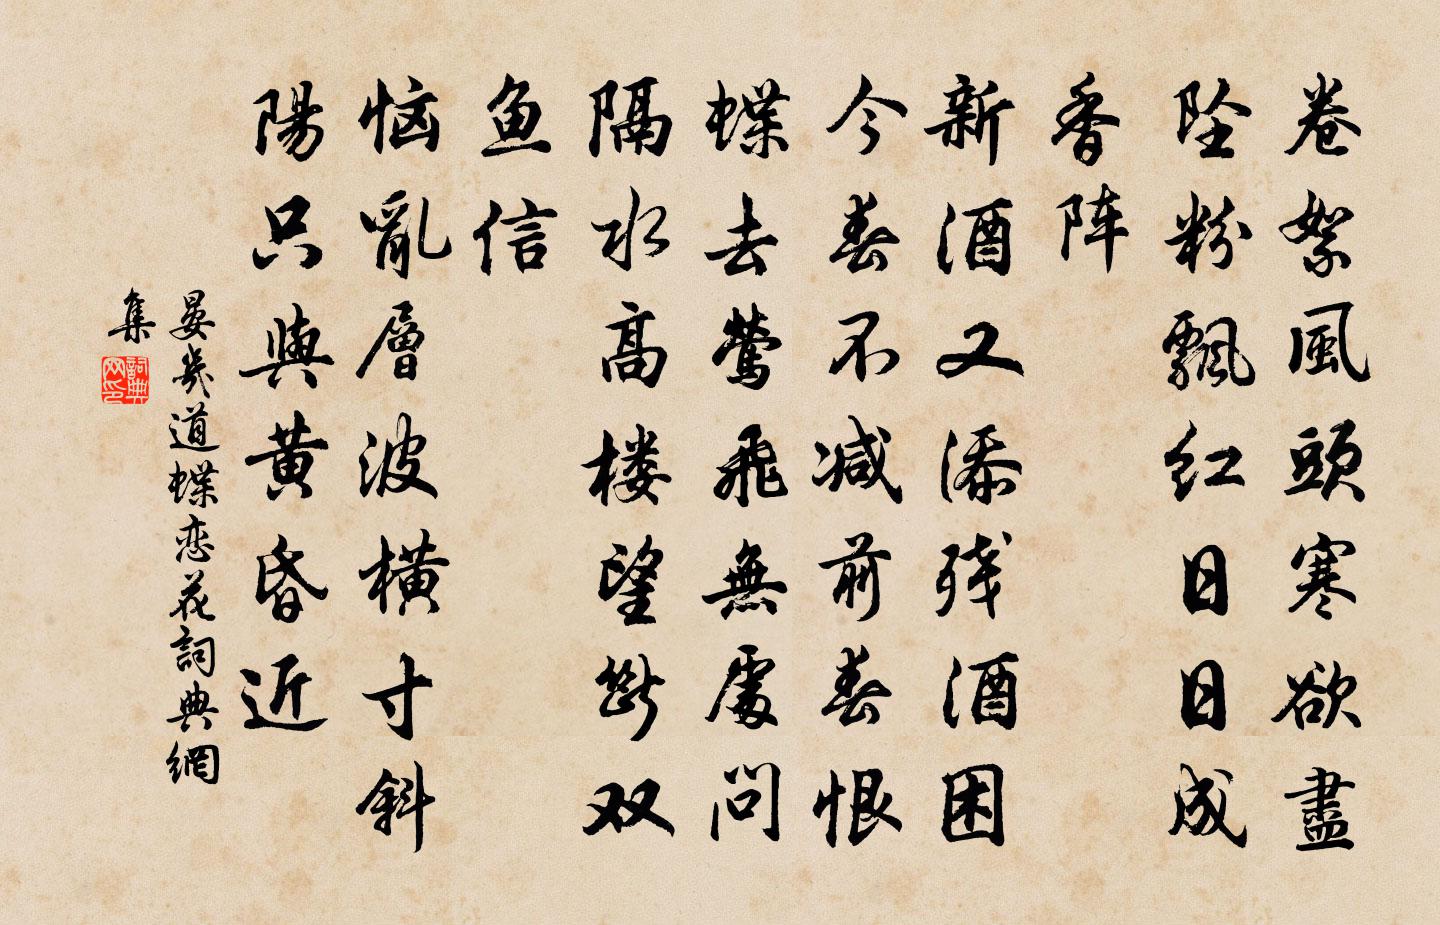 卷絮風頭寒欲盡
坠粉飄红日日成
香阵
新酒又添残酒困
今春不减前春恨
蝶去莺飛無處問
隔水高楼望斷双
鱼信
恼亂層波橫寸斜
陽只與黄昏近
晏幾道蝶恋花詞典網
集
詞典网印